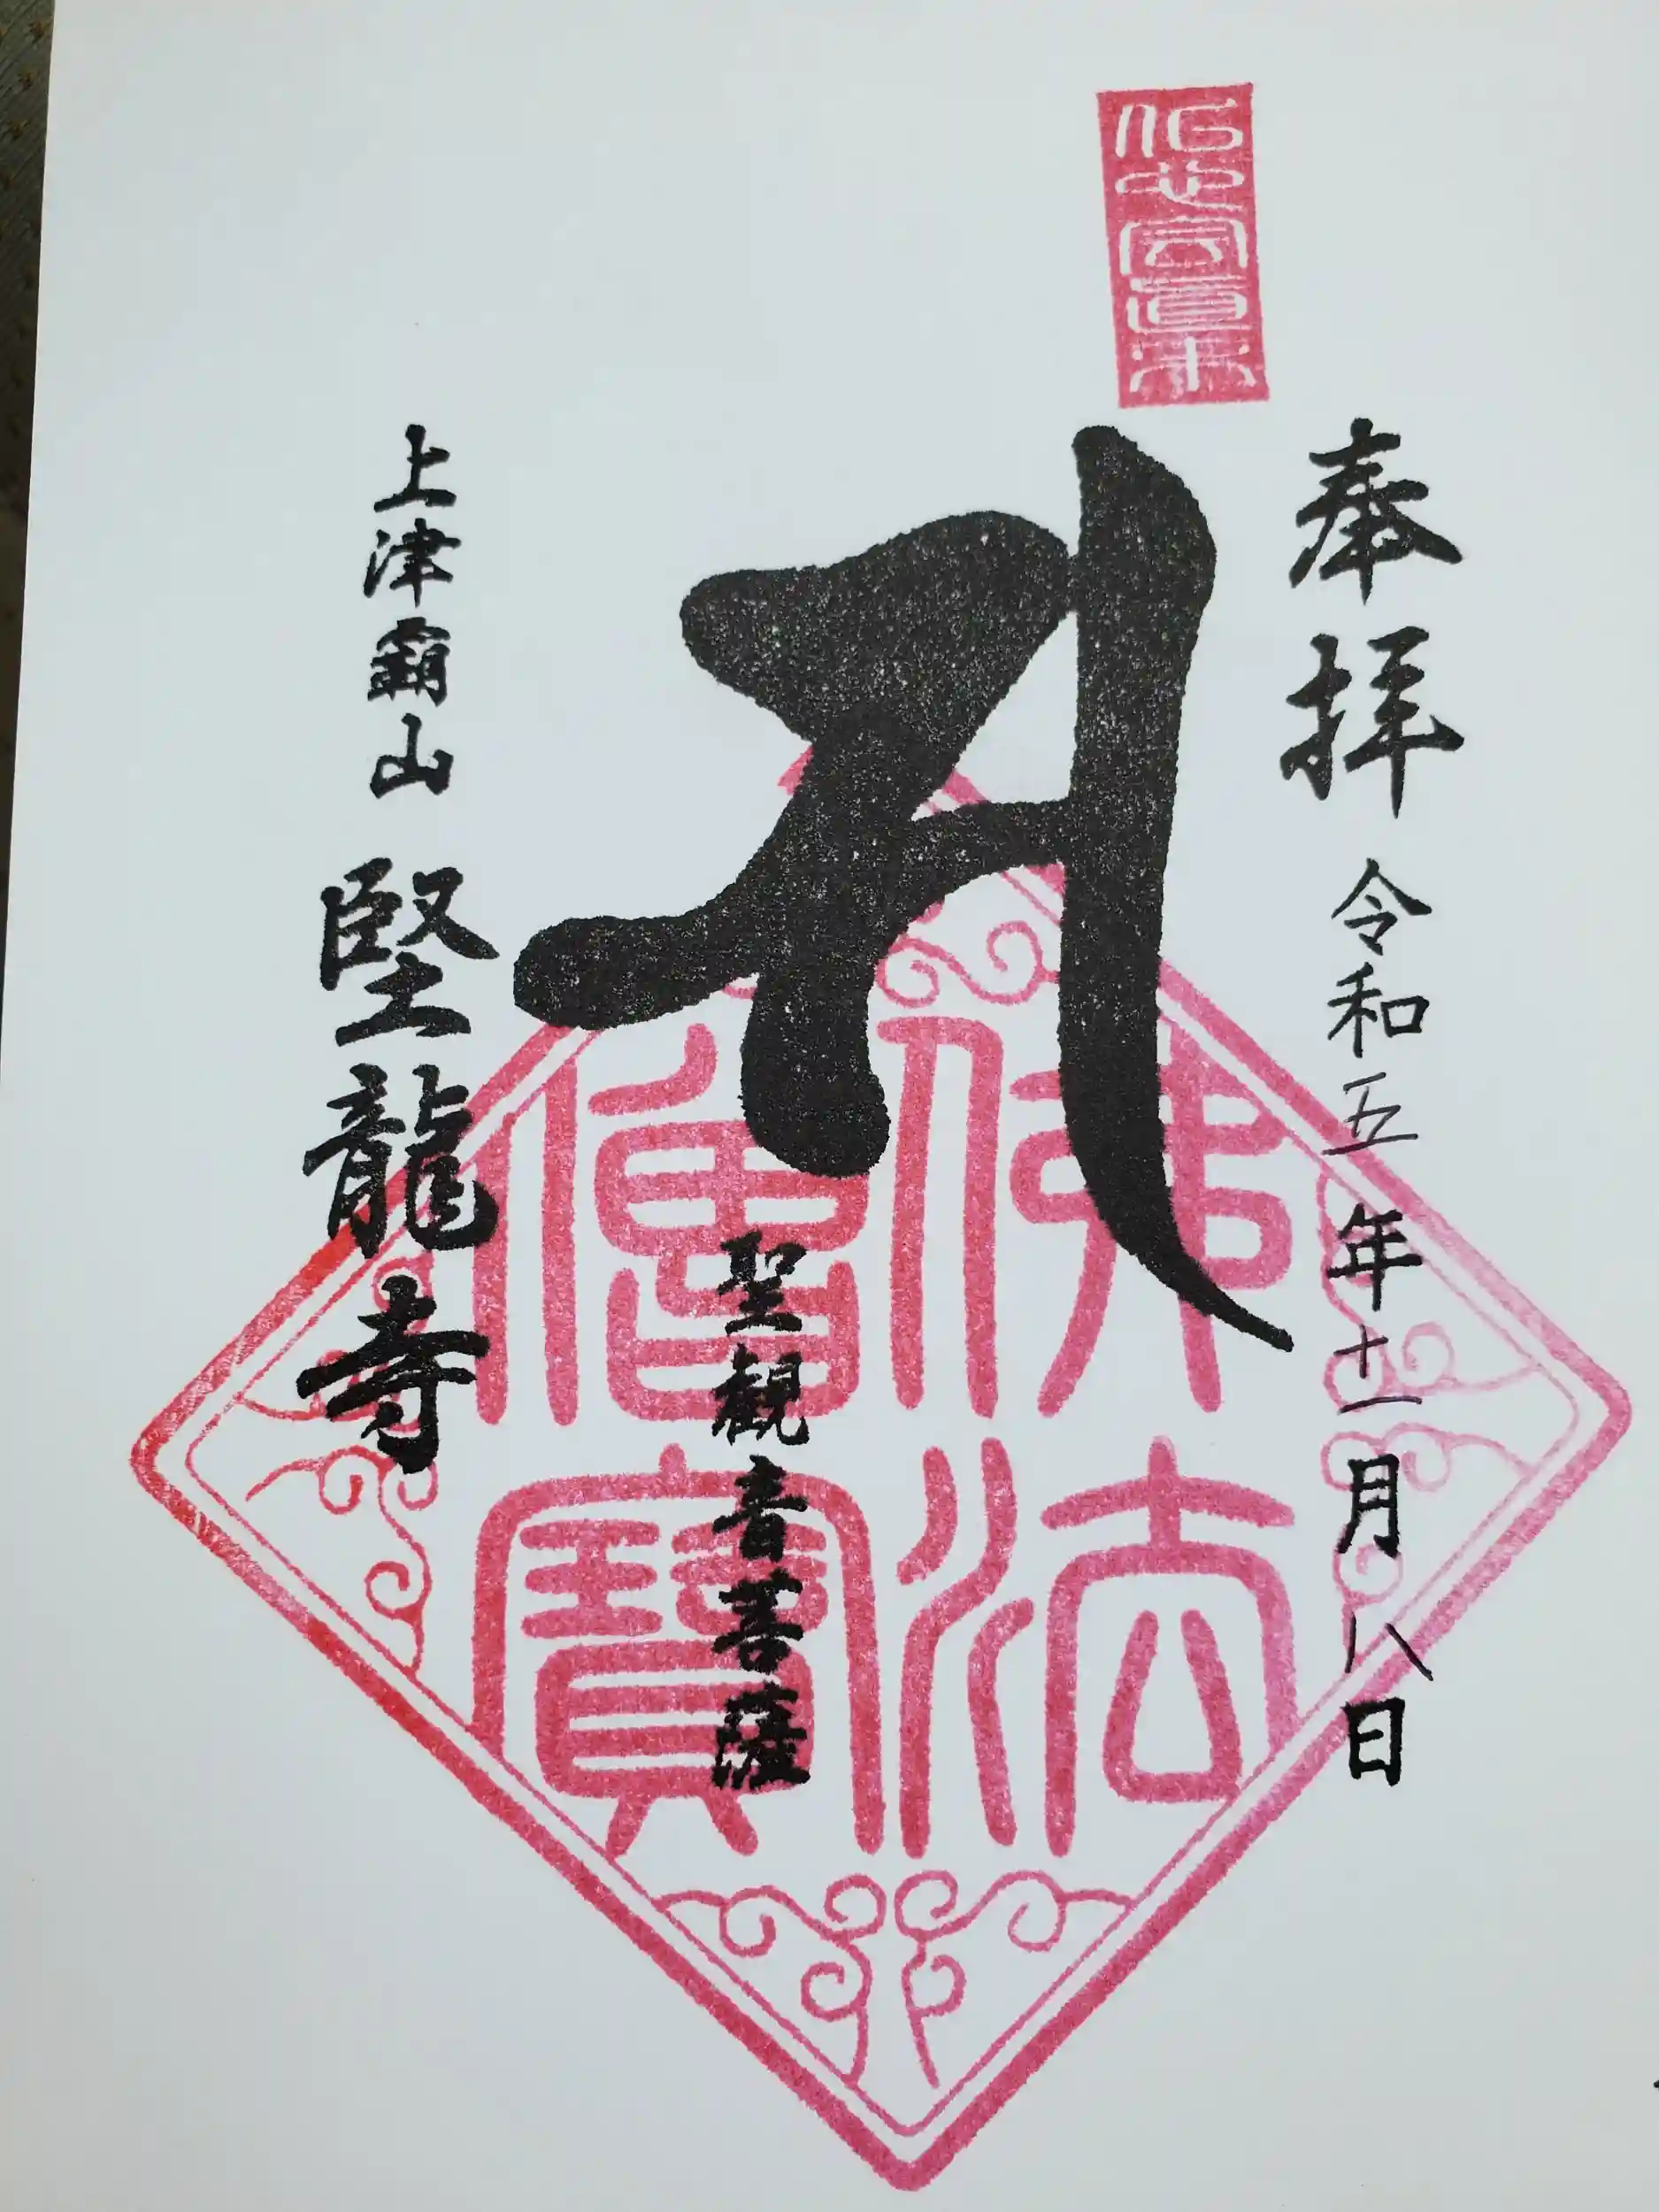 奉拝 令和五年十一月八日
佛法僧寶
聖観音菩薩
上津覇山 堅龍寺